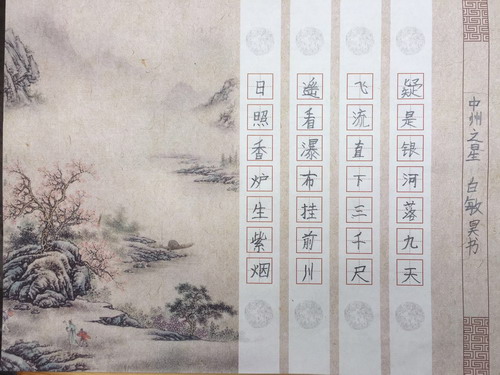 日照香炉生紫烟
遥看瀑布挂前川
飞流直下三千尺
疑是银河落九天
中州之星 白敏昊书